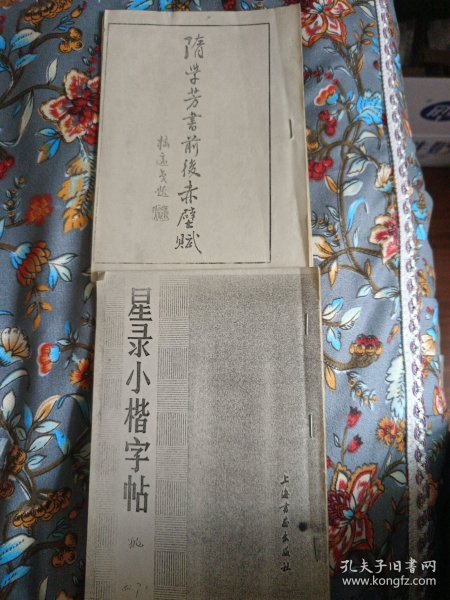 隋学芳書前後赤壁賦
星录小楷字帖
上海书画出版社
孔夫子旧书网
www.kongfz.com